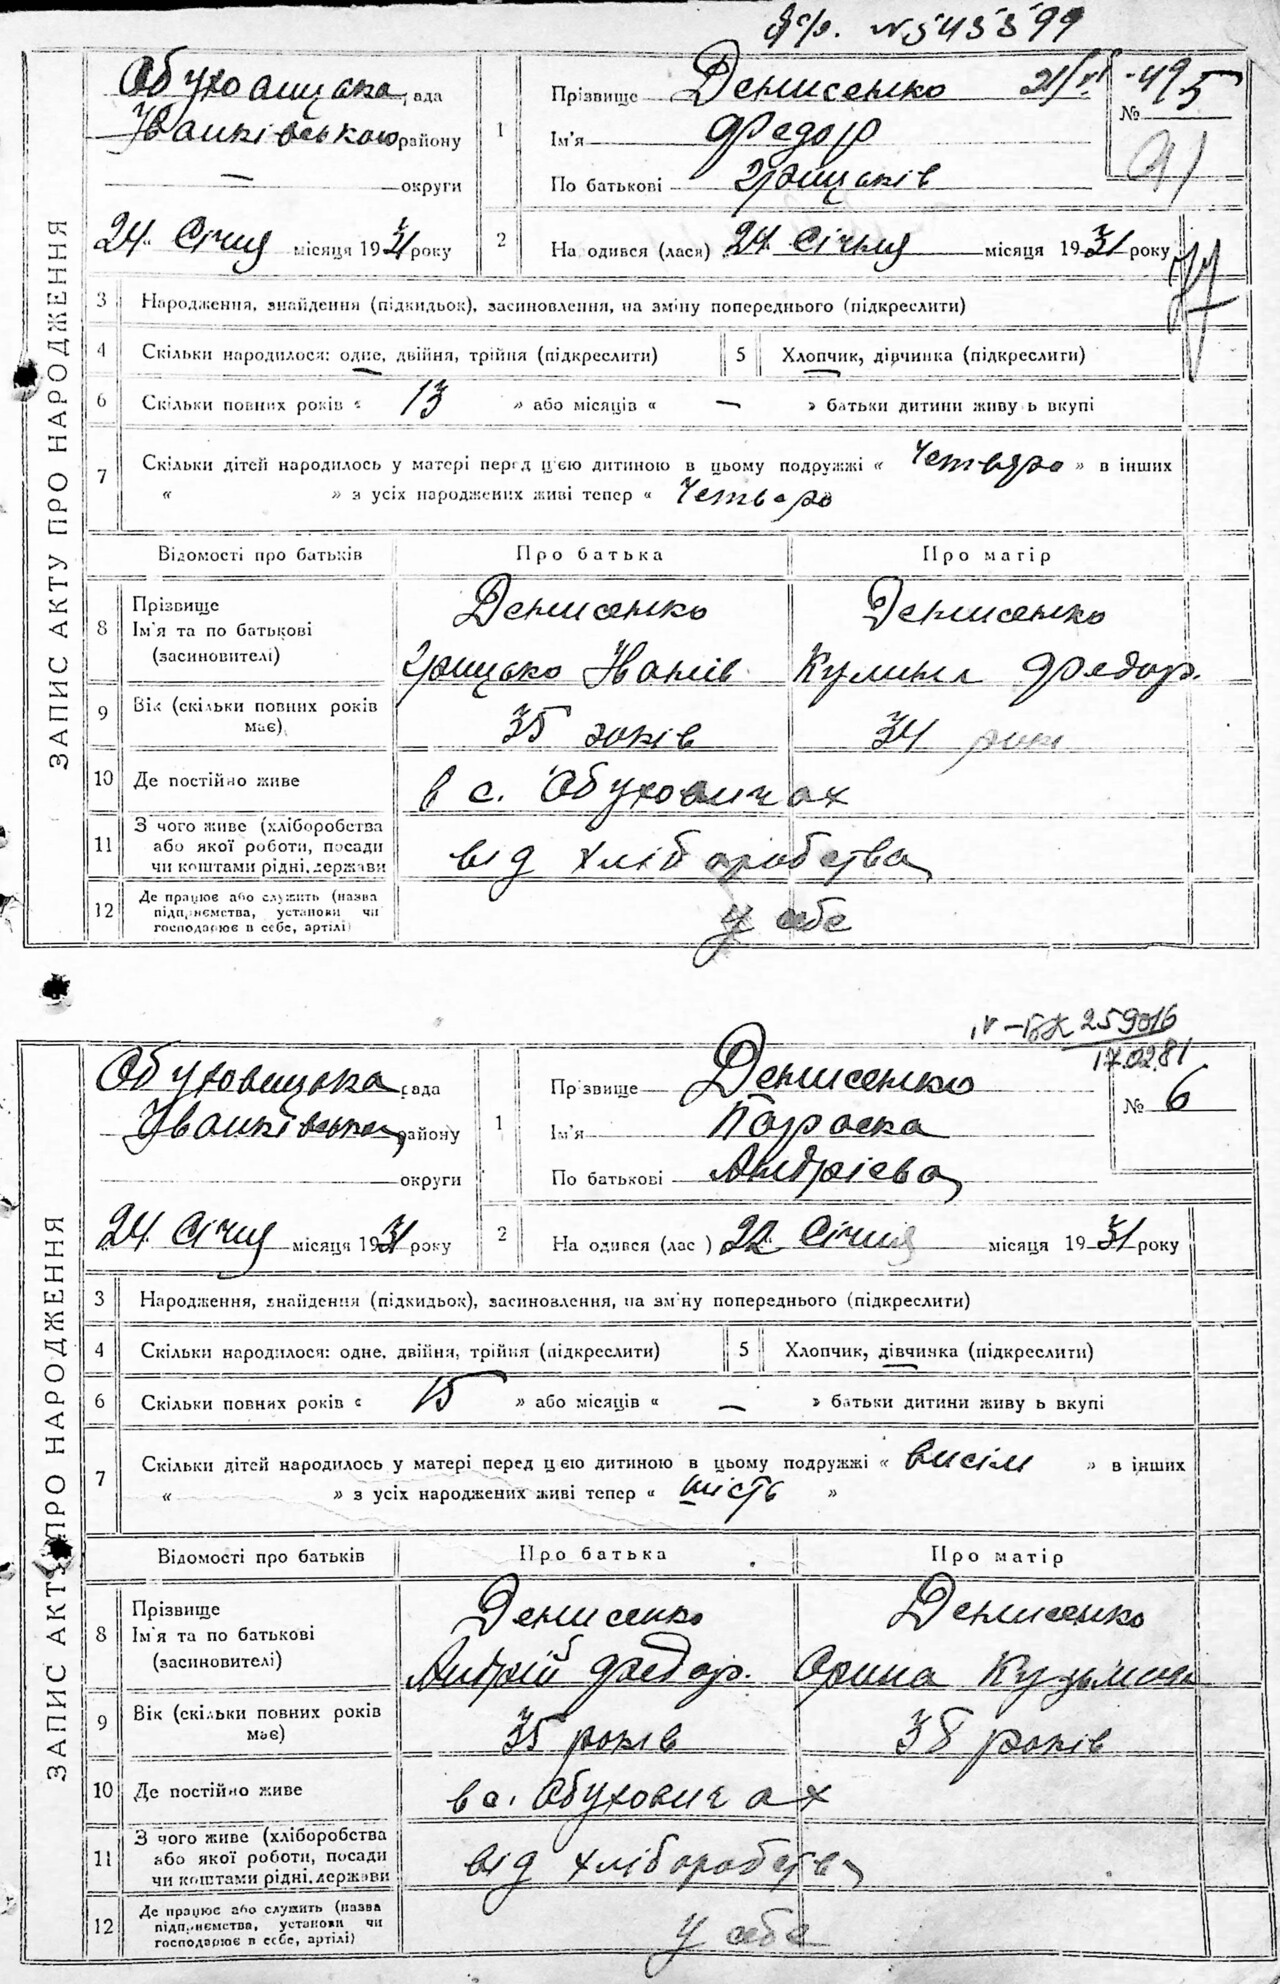 № 543599
Обуховицька рада
Іванківського району
— округи
24 Січня місяця 1931 року
ЗАПИС АКТУ ПРО НАРОДЖЕННЯ
1 Прізвище Денисенко
№ 5
Ім'я Федор
По батькові Грицьків
2 На одився (лася) 24 Січня місяця 1931 року
3 Народження, знайдення (підкидьок), засиновлення, на зміну попереднього (підкреслити)
4 Скільки народилося: одне, двійня, трійня (підкреслити) 5 Хлопчик, дівчинка (підкреслити)
6 Скільки повних років « 13 » або місяців « — » батьки дитини живу ь вкупі
7 Скільки дітей народилось у матері перед цією дитиною в цьому подружжі « Четверо » в інших
« » з усіх народжених живі тепер « Четверо
Відомості про батьків Про батька Про матір
8 Прізвище Денисенко Денисенко
Ім'я та по батькові
(засиновителі) Грицько Іванів Кулина Федор.
9 Вік (скільки повних років має) 35 років 34 роки
10 Де постійно живе в с. Обуховичах
11 З чого живе (хліборобства
або якої роботи, посади
чи коштами рідні, держави від хліборобства
12 Де працює або служить (назва
підпрнємства, установи чи
господарює в себе, артілі) у себе
259016
17.02.81
Обуховицька рада
Іванківська району
округи
24 Січня місяця 1931 року
ЗАПИС АКТУ ПРО НАРОДЖЕННЯ
1 Прзвище Денисенко
№ 6
Ім'я Параска
По батькові Андрієва
2 На одився (лас ) 22 Січня місяця 1931 року
3 Народження, знайдення (підкидьок), засиновлення, на зм'ну попереднього (підкреслити)
4 Скільки народилося: одне, двійня, трійня (підкреслити) 5 Хлопчик, дівчинка (підкреслити)
6 Скільки повних років « 15 » або місяців « — » батьки дитини живу ь вкупі
7 Скільки дітей народилось у матері перед цією дитиною в цьому подружжі « висім » в інших
« » з усіх народжених живі тепер « шість »
Відомості про батьків Про батька Про матір
8 Прізвище Денисенко Денисенко
Ім'я та по батькові
(засиновителі) Андрій Федор. Орина Кузьмова
9 Вік (скільки повних років має) 35 років 38 років
10 Де постійно живе в с. Обуховичах
11 З чого живе (хліборобства
або якої роботи, посади
чи коштами рідні, держави від хліборобства
12 Де працює або служить (назва
підпрнємства, установи чи
господарює в себе, артілі) у себе